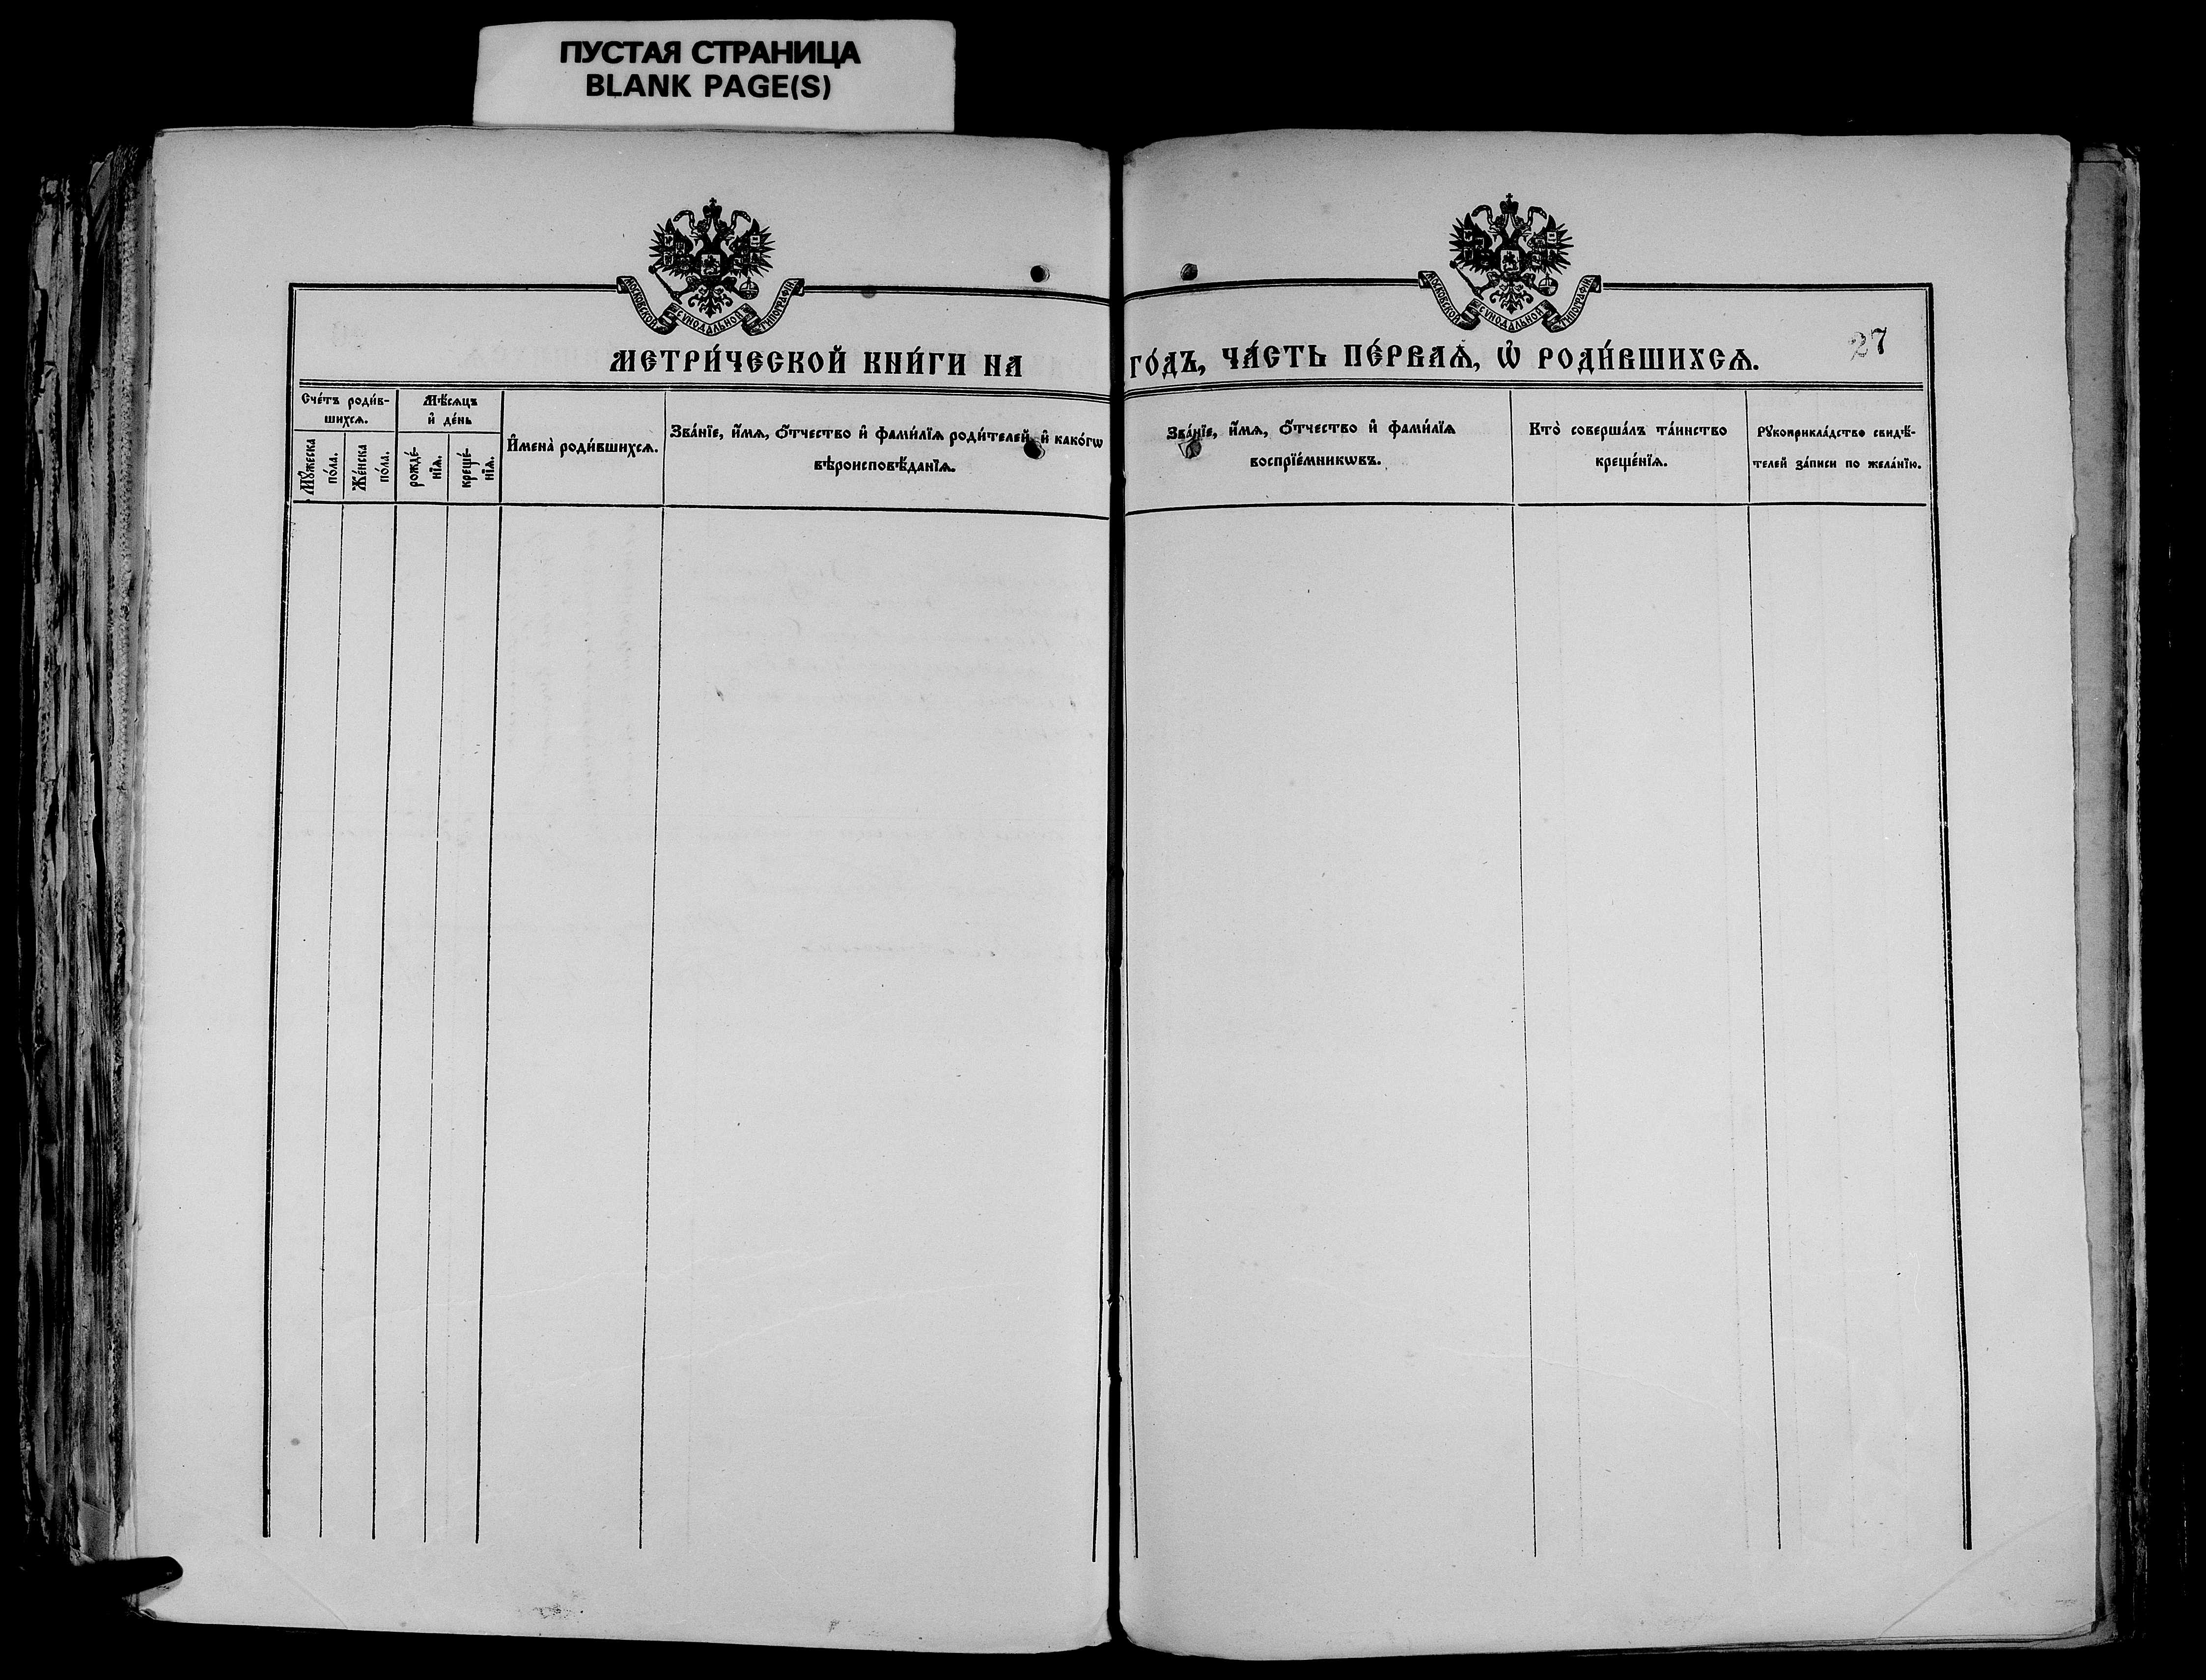 ПУСТАЯ СТРАНИЦА
BLANK PAGE(S)
МОСКОВСКОЙ СѴНОДАЛЬНОЙ ТИПОГРАФІИ
МЕТРИ́ЧЕСКОЙ КНИ́ГИ НА
Сче́тъ роди́в-
шихсѧ.
Мѣ́сѧцъ
и҆ де́нь
Мꙋ́жеска
по́ла.
Же́нска
по́ла.
рожде́-
нїѧ.
креще́-
нїѧ.
И҆мена̀ роди́вшихсѧ.
Зва́нїе, и҆́мѧ, ѻ҆́тчество и҆ фами́лїѧ роди́телей, и҆ како́гѡ
вѣроисповѣ́данїѧ.
МОСКОВСКОЙ СѴНОДАЛЬНОЙ ТИПОГРАФІИ
27
ГО́ДЪ, ЧА́СТЬ ПЕ́РВАѦ, Ѽ РОДИ́ВШИХСѦ.
Зва́нїе, и҆́мѧ, ѻ҆́тчество и҆ фами́лїѧ
воспрїе́мникѡвъ.
Кто̀ соверша́лъ та́инство
креще́нїѧ.
Рꙋкоприкла́дство свидѣ́-
телей за́писи по жела́нїю.